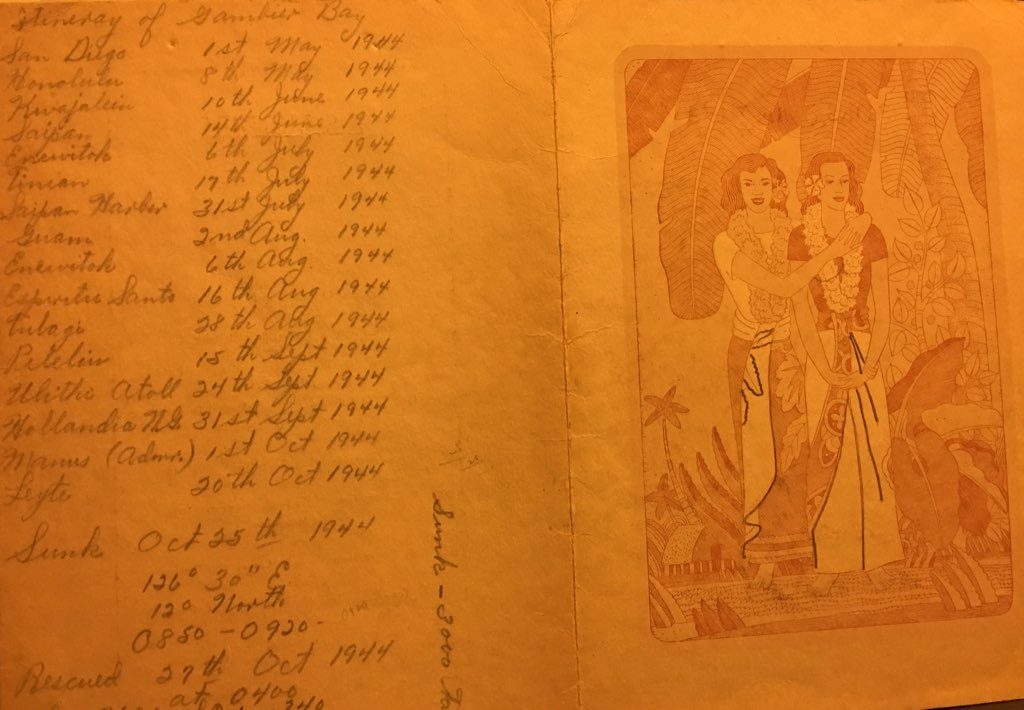 Itineray of Gambier Bay
San Diego 1st May 1944
Honolulu 8th May 1944
Kwajalein 10th June 1944
Saipan 14th June 1944
Enewitok 6th July 1944
Tinian 17th July 1944
Saipan Harber 31st July 1944
Guam 2nd Aug. 1944
Enewitok 6th Aug. 1944
Espiritu Santo 16th Aug 1944
Tulagi 28th Aug 1944
Peleliu 15th Sept 1944
Ulithe Atoll 24th Sept. 1944
Hollandia N.G. 31st Sept 1944
Manus (Admr.) 1st Oct 1944
Leyte 20th Oct 1944
Sunk Oct 25th 1944
126° 30" E
12° North
0850-0920-
Rescued 27th Oct 1944
at 0400
340
Sunk - 3000